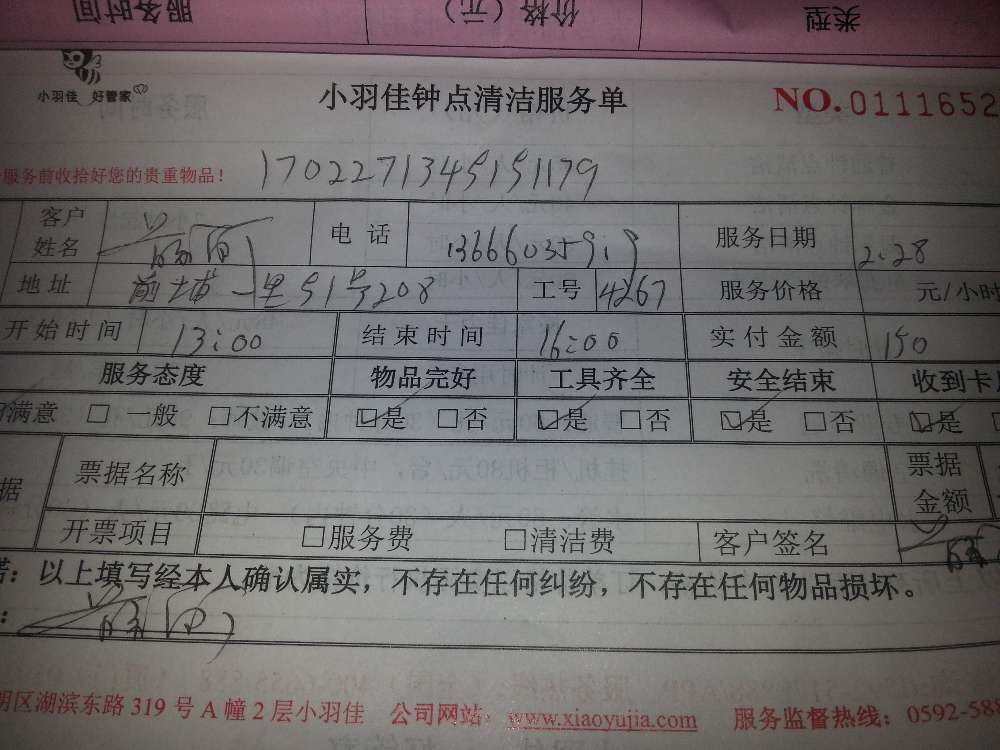 服务时间 价格（元） 类型
小羽佳 好管家 小羽佳钟点清洁服务单 NO.0111652
服务前收拾好您的贵重物品！ 1702271345151179
客户姓名 电话 服务日期 2.28
地址 前埔一里51号208 工号 4267 服务价格 元/小时
开始时间 13:00 结束时间 16:00 实付金额 150
服务态度 物品完好 工具齐全 安全结束 收到卡
满意 □ 一般 □不满意 ☑是 □否 ☑是 □否 ☑是 □否 ☑是
据 票据名称 票据金额
开票项目 □服务费 □清洁费 客户签名
：以上填写经本人确认属实，不存在任何纠纷，不存在任何物品损坏。
明区湖滨东路 319 号 A 幢 2 层小羽佳 公司网站：www.xiaoyujia.com 服务监督热线：0592-588